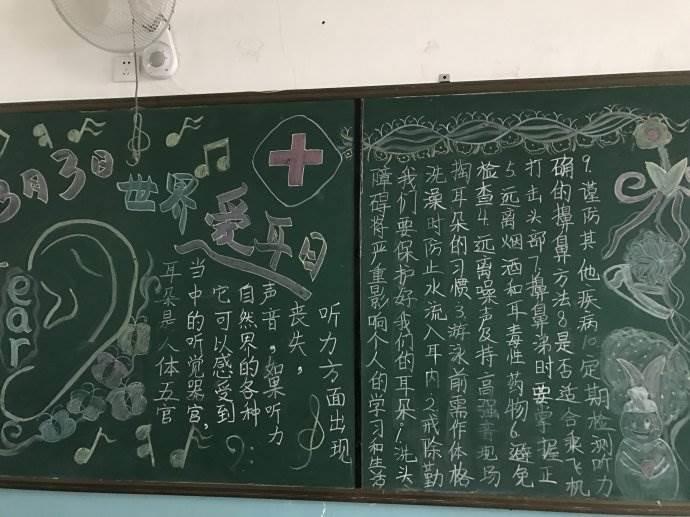 3月3日
世界
爱耳日
ear
耳朵是人体五官
当中的听觉器官,
它可以感受到
自然界的各种
声音。如果听力
丧失,
听力方面出现
障碍将严重影响个人的学习和生活
我们要保护好我们的耳朵!1.洗头
洗澡时防止水流入耳内2.戒除勤
掏耳朵的习惯3.游泳前需作体格
检查4.远离噪声及持高强音现场
5.远离烟酒和耳毒性药物6.避免
打击头部7.擤鼻涕时要掌握正
确的擤鼻方法8.是否适合乘飞机
9.谨防其他疾病10.定期检测听力